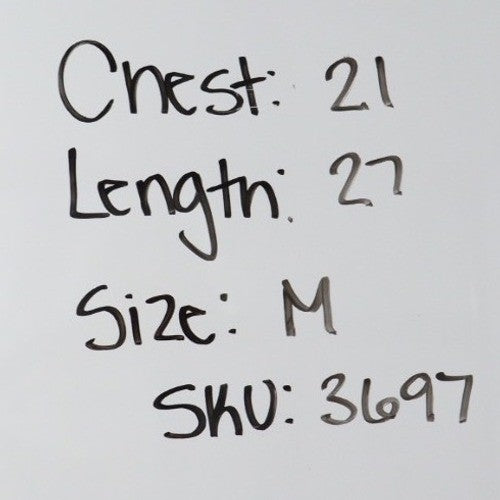 Chest: 21
Length: 27
Size: M
SKU: 3697